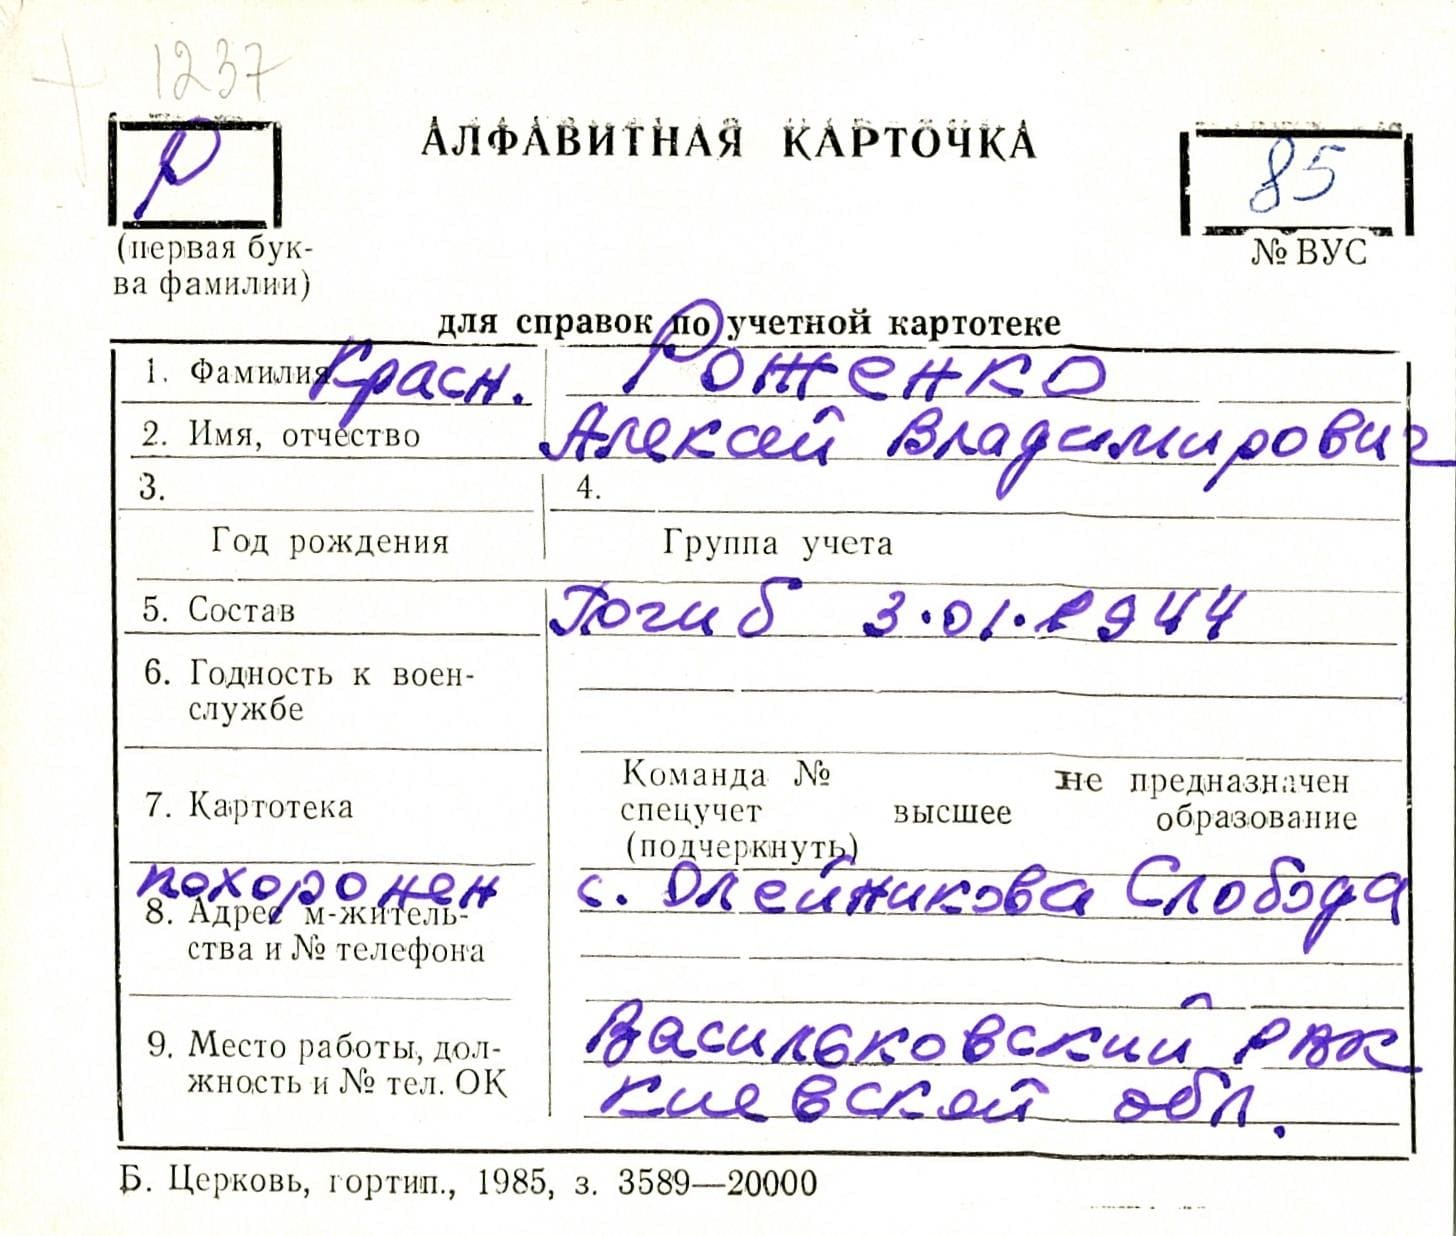 1237
Р
АЛФАВИТНАЯ КАРТОЧКА
85
(первая бук-
ва фамилии)
№ ВУС
для справок по учетной картотеке
1. Фамилия Красн. Роженко
2. Имя, отчество Алексей Владимирович
3. 4.
Год рождения Группа учета
5. Состав Погиб 3.01.1944
6. Годность к воен-
службе
Команда № не предназначен
7. Картотека спецучет высшее образование
(подчеркнуть)
похоронен с. Олейникова Слобода
8. Адрес м-житель-
ства и № телефона
9. Место работы, дол- Васильковский РВК
жность и № тел. ОК Киевской обл.
Б. Церковь, гортип., 1985, з. 3589—20000